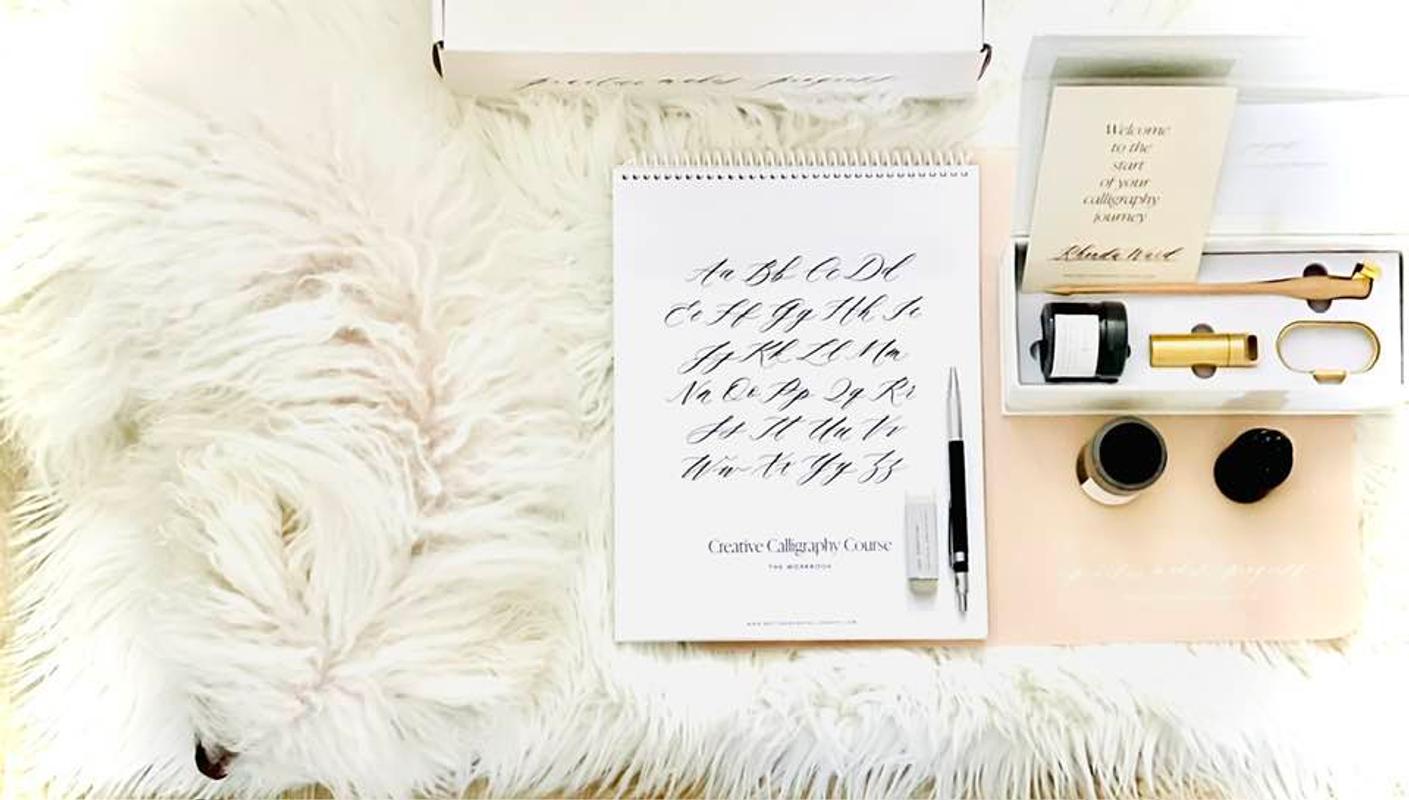 practice makes progress
Welcome
to the
start
of your
calligraphy
journey
Aa Bb Cc Dd
Ee Ff Gg Hh Ii
Jj Kk Ll Mm
Nn Oo Pp Qq Rr
Ss Tt Uu Vv
Ww Xx Yy Zz
Creative Calligraphy Course
THE WORKBOOK
practice makes progress